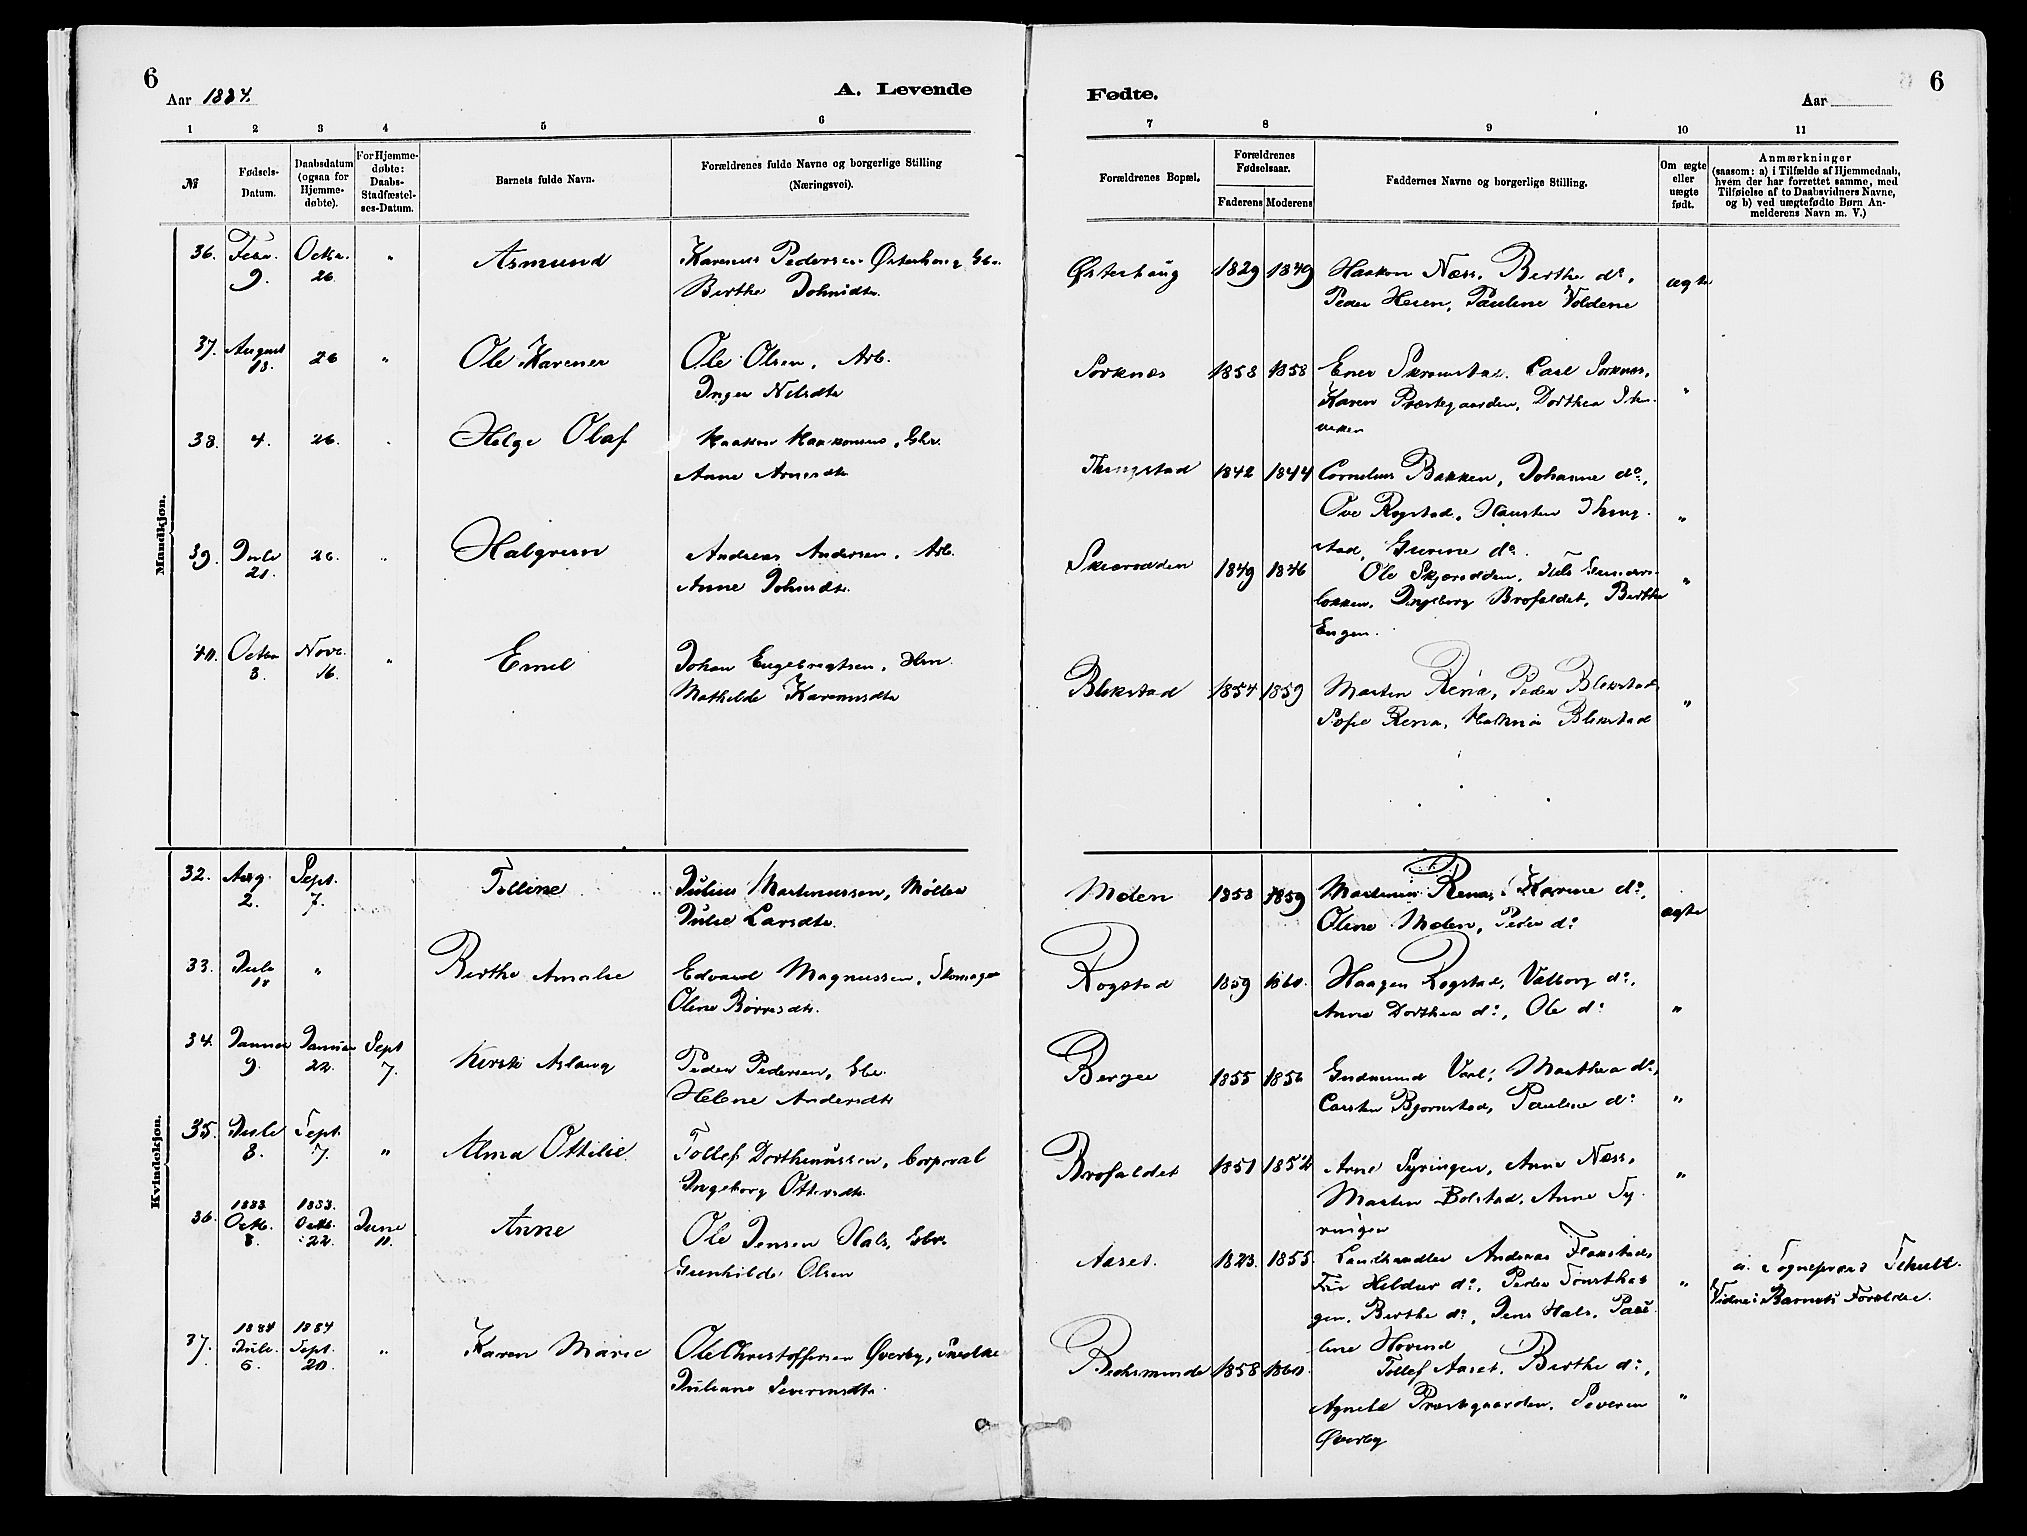 6
Aar 1884.
A. Levende
Fødte.
Aar
6
1 2 3 4 5 6
7 8 9 10 11
№
Fødsels-
Datum.
Daabsdatum
(ogsaa for
Hjemme-
døbte).
For Hjemme-
døbte:
Daabs-
Stadfæstel-
ses-Datum.
Barnets fulde Navn.
Forældrenes fulde Navne og borgerlige Stilling
(Næringsvei).
Forældrenes Bopæl.
Forældrenes
Fødselsaar.
Faderens Moderens
Faddernes Navne og borgerlige Stilling.
Om ægte
eller
uægte
født.
Anmærkninger
(saasom: a) i Tilfælde af Hjemmedaab,
hvem der har forrettet samme, med
Tilføielse af to Daabsvidners Navne,
og b) ved uægtefødte Børn An-
melderens Navn m. V.)
Mandkjøn.
36. Febr. 9. Octbr. 26 " Asmund
Karenus Pedersen Østerhaug Gbr.
Berthe Johnsdtr.
Østerhaug 1829 1849
Haakon Næss, Berthe do,
Peder Heien, Pauline Voldene
ægte
37. August 18. 26 " Ole Karener
Ole Olsen, Arb.
Inger Nilsdtr
Sorknæs 1858 1858
Ener Skramstad. Carl Sorknæs,
Karen Præstegaarden, Dorthea
"
38. 4. 26. Helge Olaf
Haakon Haakonsen, Gbr.
Anne Arnesdtr
Thingstad 1842 1844
Cornelius Bakken, Johanne do,
Ove Rogstad, Hansten Thing-
stad, Gurine do.
"
39. Juli 21. 26. " Halgrim
Andreas Andersen, Arb.
Anne Johnsdtr.
Skjærodden 1849 1846
Ole Skjærodden, Nils
løkken, Ingeborg Brofaldet, Berthe
Engen.
"
40. Octbr 8. Novbr. 16. " Emil
Johan Engebretsen, Hm.
Mathilde Karenusdtr
Blekstad 1854 1859
Marten Rena, Peder Blekstad
Sofie Rena, Blekstad
"
Kvindekjøn.
32. Aug. 2. Sept. 7. Tolline
Julius Martinussen, Møller
Julie Larsdtr.
Moen 1858 1859
Martinus Rena, Karine do,
Oline Moen, Peder do
ægte
33. Juli 18 " Berthe Amalie
Edvard Magnussen, Skomager
Oline Børresdtr.
Rogstad 1859 1860.
Haagen Rogstad, Valborg do,
Anne Dorthea do, Ole do
"
34. Januar 9. Januar 22. Sept 7. Kirsti Aslaug
Peder Pedersen, Gbr.
Helene Andersdtr
Berger 1855 1856
Gudmund Vael, Marthea do,
Carsten Bjørnstad, Pauline do
"
35. Juli 8. Sept. 7. " Alma Ottilie
Tollef Dorthinussen, Corporal
Ingeborg Ottersdtr.
Brofaldet 1851 1852
Arne Syringen, Anne Næss,
Marten Bolstad, Anne Sy-
ringen
"
36. 1883 Octb. 8. 1883. Octb. 22. June 11. Anne
Ole Jensen Hals, Gbr.
Gunhilde Olsen
Aaset. 1823. 1855.
Landhandler Andreas Flakstad,
Fru Hildur do, Peder Tønstha-
gen, Berthe do, Jens Hals, Pau-
line Hovind
"
a. Sogneprest Schult.
Vidne: Barnets Forældre.
37. 1884 Juli. 6. 1884 Sept. 20. " Karen Marie
Ole Christoffersen Øverby, Snedker
Juliane Severinsdtr.
Bechsminde 1858 1860.
Tollef Aaset, Berthe do,
Agnete Præstegaarden, Severin
Øverby
"